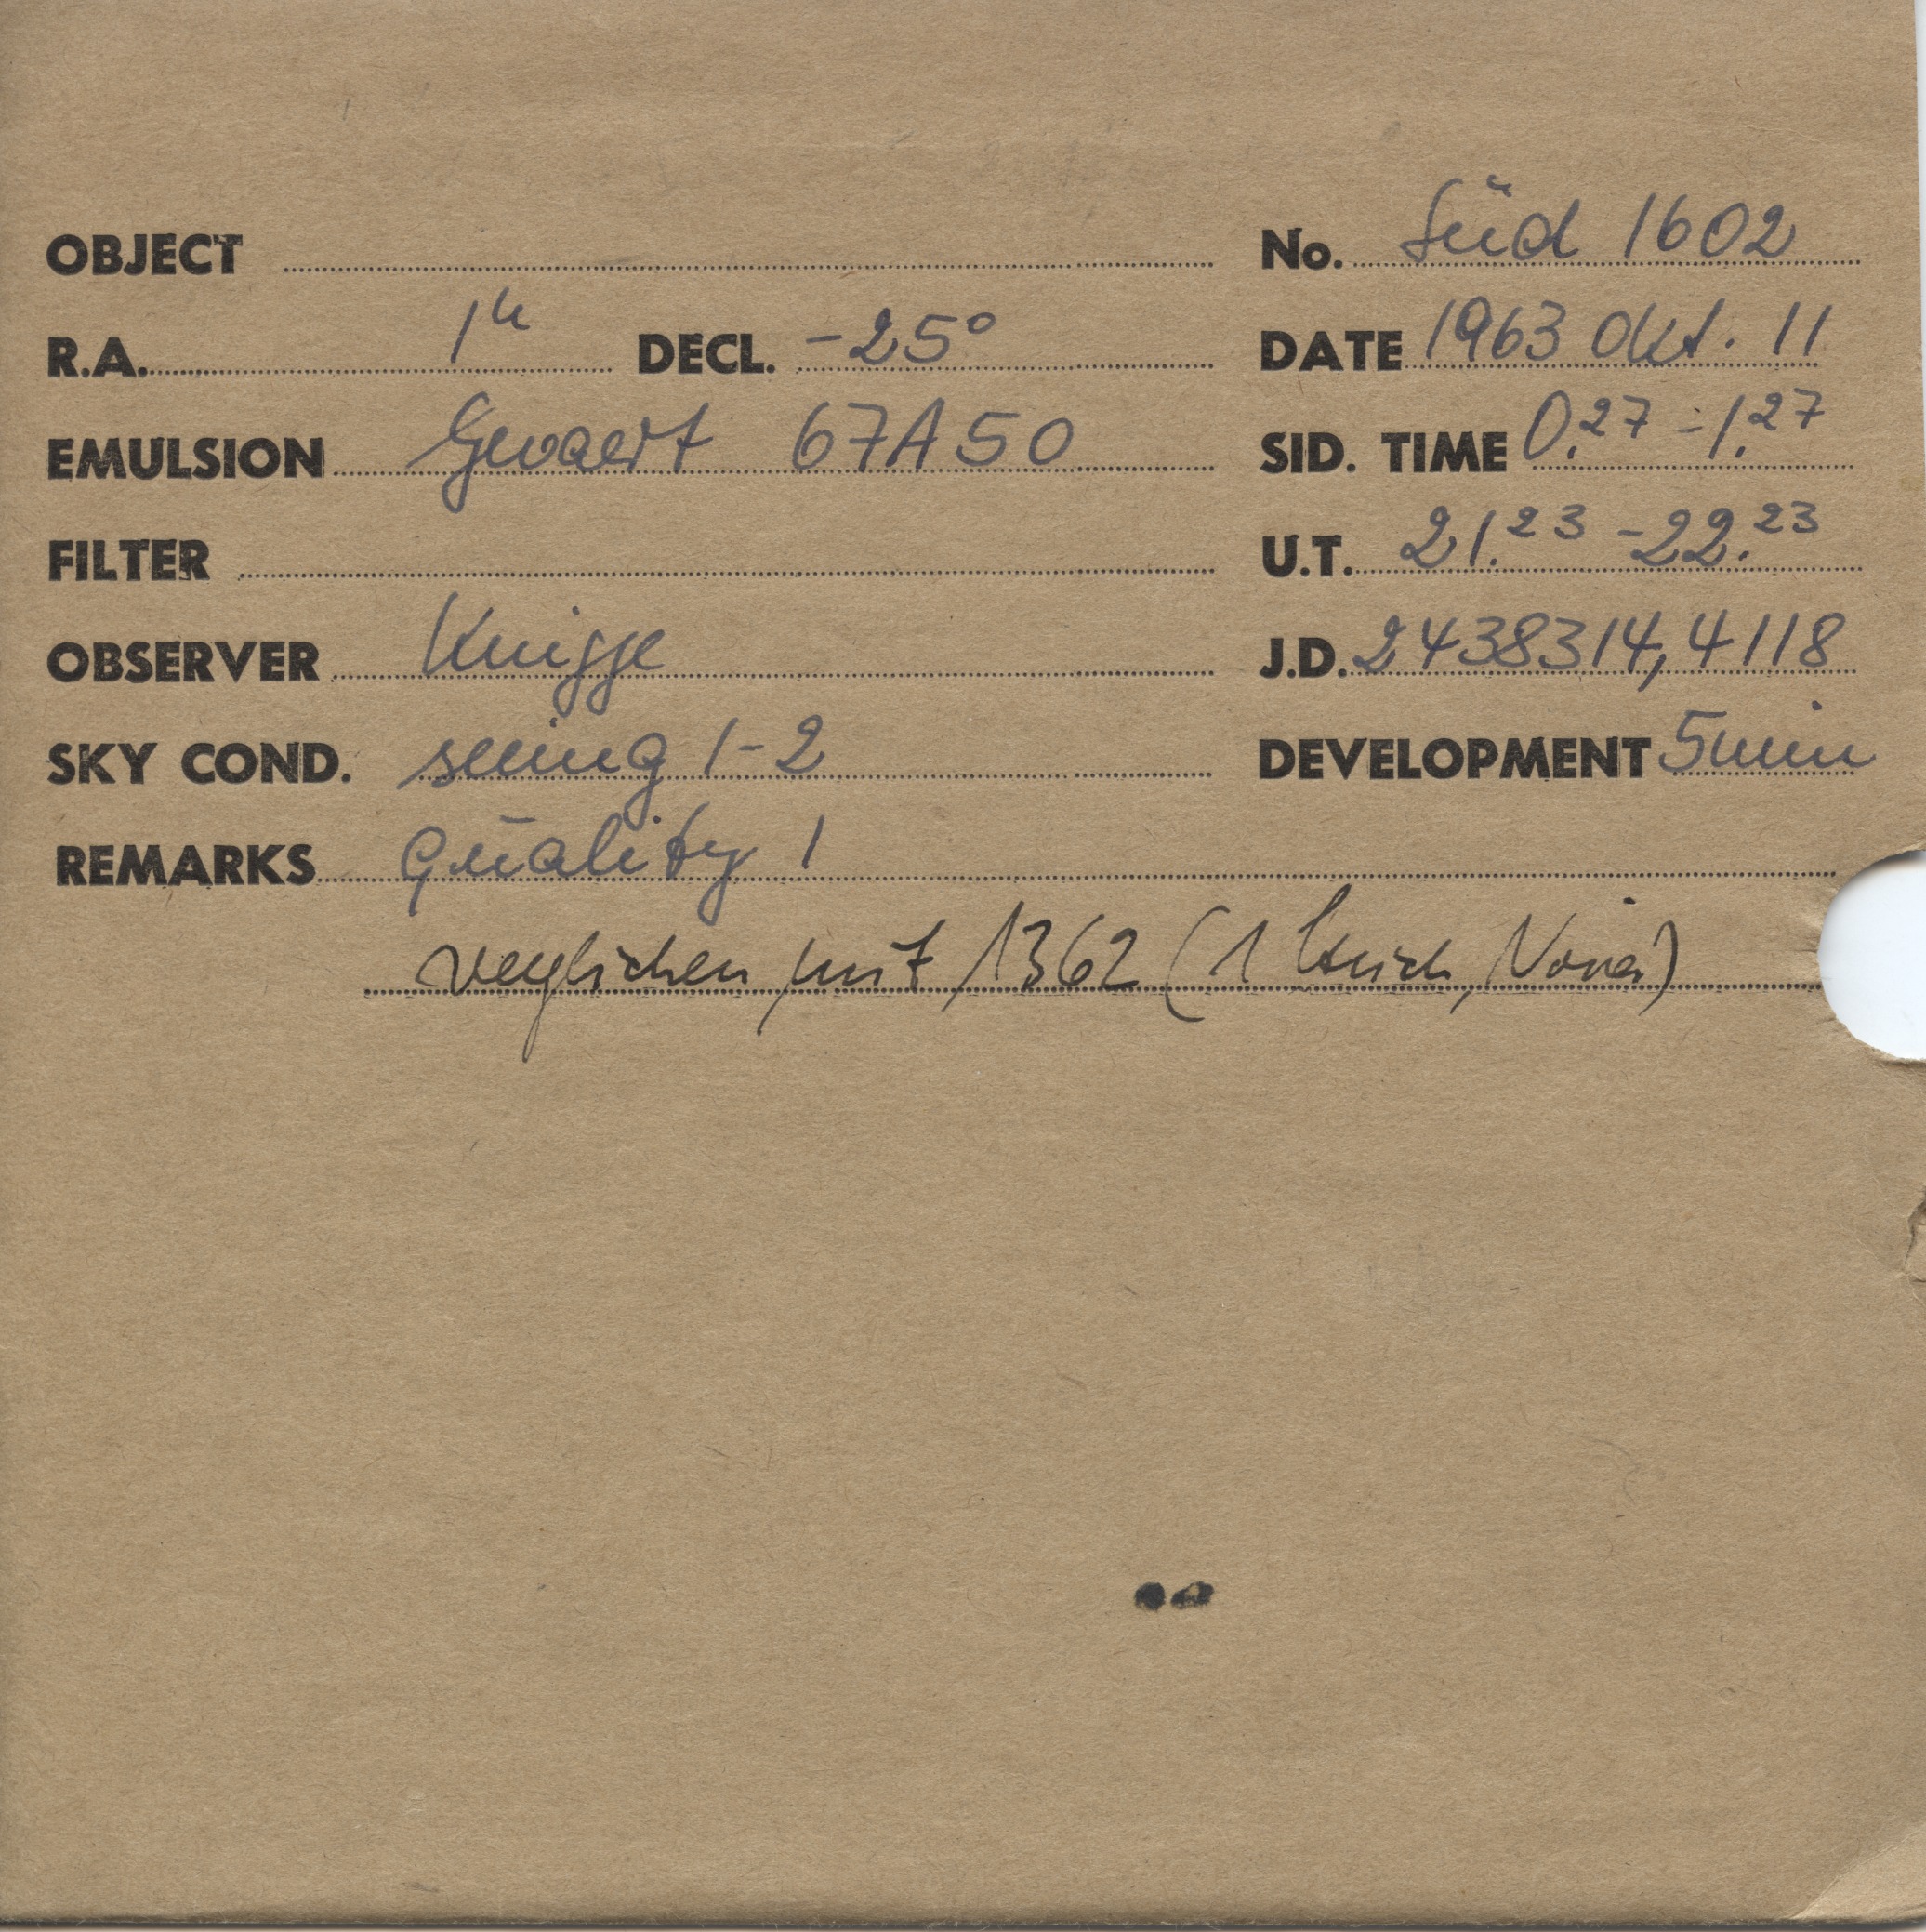 OBJECT
No. Süd 1602
R.A. 1h DECL. -25°
DATE 1963 Okt. 11
EMULSION Gevaert 67A50
SID. TIME 0.27 - 1.27
FILTER
U.T. 21.23 - 22.23
OBSERVER Knigge
J.D. 2438314,4118
SKY COND. seeing 1-2
DEVELOPMENT 5min
REMARKS Quality 1
verglichen mit 1362 (1 Strich, Nova)